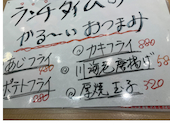 ランチタイムの
かる〜いおつまみ
あじフライ
ポテトフライ
@カキフライ 880
@川海老唐揚げ 58
@厚焼玉子 320